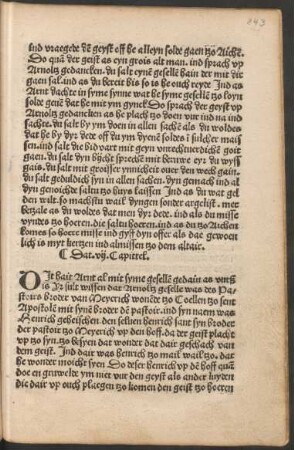 ind vraegede dē geyst off he alleyn solde gaen tzo Aichē.
Do quā der geist as eyn grois alt man. ind sprach vp
Arnoltz gedancken. du salt eynē gesellē hain der mit dir
gaen sal. ind as du bereit bis so is he ouch reyde Ind as
Arnt dachte in syme synne wat he syme gesellē tzo loyn
solde geuē dat he mit ym gynck Do sprach der geyst vp
Arnoltz gedancken as he plach tzo doen vur ind na ind
sachte. du salt by ym doen in allen sachē als du woldes
dat he by dyr dede off du ym dyenē soldes in sulcher mais-
sen. ind salt die bidvart mit geyn vnrechtverdichē goit
gaen. du salt dyn bijcht sprechē mit beruwe eyr du wyss
gais. du salt mit groisser ynnicheit ouer den wech gain.
du salt geduldich syn in allen sachen. dyn gemach ind al
dyn genoichde saltu tzo huys laissen Ind as du wat gel
den walt. so machstu wail dyngen sonder argelist. mer
betzale as du woldes dat men dyr dede. ind als du misse
vyndes tzo hoeren. die saltu hoeren. ind as du tzo Aichen
komes so hoere misse ind gyff dyn offer als dat gewoen
lich is myt kertzen ind almissen tzo dem altair.
Dat .vij. Capittel.
Dit hait Arnt al mit syme gesellē gedain as vurß
is Ir sult wissen dat Arnoltz geselle was des Pa-
stoirs broder van Meyerich wonēde tzo Coellen tzo sent
Apostolē mit synē broder dē pastoir. ind syn naem was
Henrich geheisschen. den seluen henrich sant syn broder
der pastoir tzo Meyerich vp den hoff. da der geist placht
vp tzo syn. tzo besyen dat wonder dat dair geschach van
dem geist. Ind dair was henrich tzo mail wail tzo. dat
he wonder moicht syen Do deser henrich vp dē hoff quā
doe en gruwelde ym niet vur den geyst als ander luyden
die dair vp ouch plaegen tzo komen den geist tzo hoeren